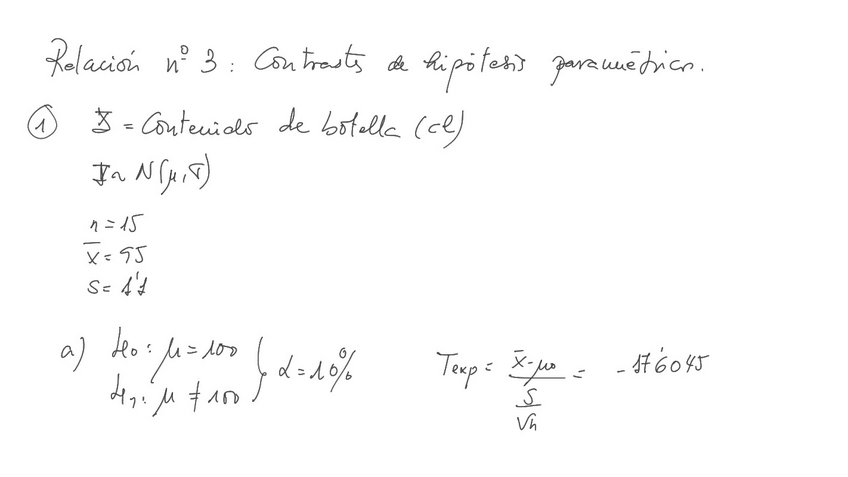 Relación nº 3: Contrastes de hipótesis paramétricos.
① X = Contenido de botella (cl)
X ~ N(μ, σ)
n = 15
x̄ = 95
S = 1'1
a) H₀: μ = 100 } α = 10%
H₁: μ ≠ 100
Texp = (x̄ - μ₀) / (S / √n) = -17'6045